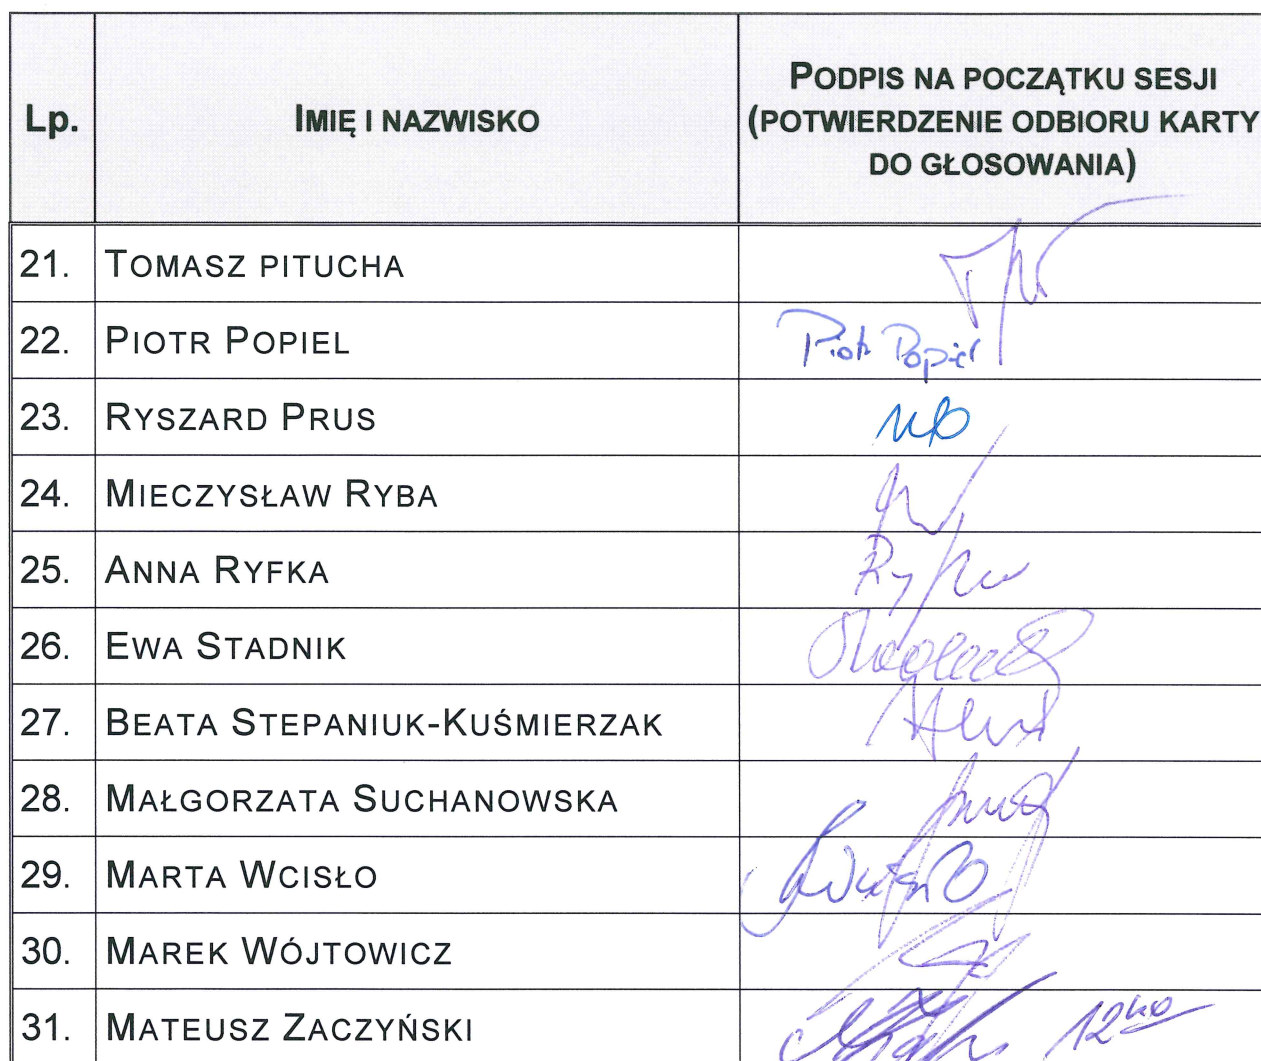 Lp.
IMIĘ I NAZWISKO
PODPIS NA POCZĄTKU SESJI
(POTWIERDZENIE ODBIORU KARTY
DO GŁOSOWANIA)
21. TOMASZ PITUCHA
22. PIOTR POPIEL Piotr Popiel
23. RYSZARD PRUS nb
24. MIECZYSŁAW RYBA
25. ANNA RYFKA Ryfka
26. EWA STADNIK
27. BEATA STEPANIUK-KUŚMIERZAK
28. MAŁGORZATA SUCHANOWSKA
29. MARTA WCISŁO
30. MAREK WÓJTOWICZ
31. MATEUSZ ZACZYŃSKI